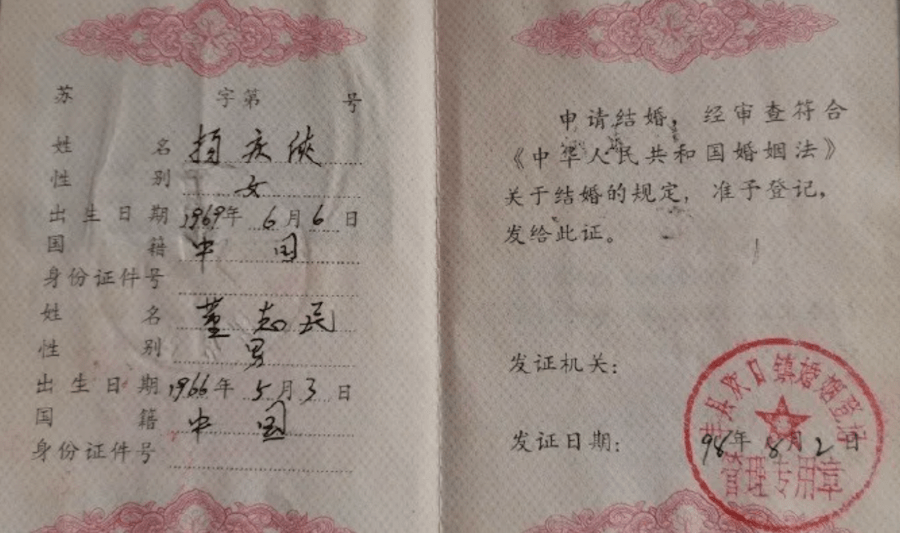 苏 字第 号
姓名 杨庆侠
性别 女
出生日期 1969年6月6日
国籍 中国
身份证件号
姓名 董志民
性别 男
出生日期 1966年5月3日
国籍 中国
身份证件号
申请结婚，经审查符合
《中华人民共和国婚姻法》
关于结婚的规定，准予登记，
发给此证。
发证机关：
发证日期： 98年8月2日
县欢口镇婚姻登记
管理专用章